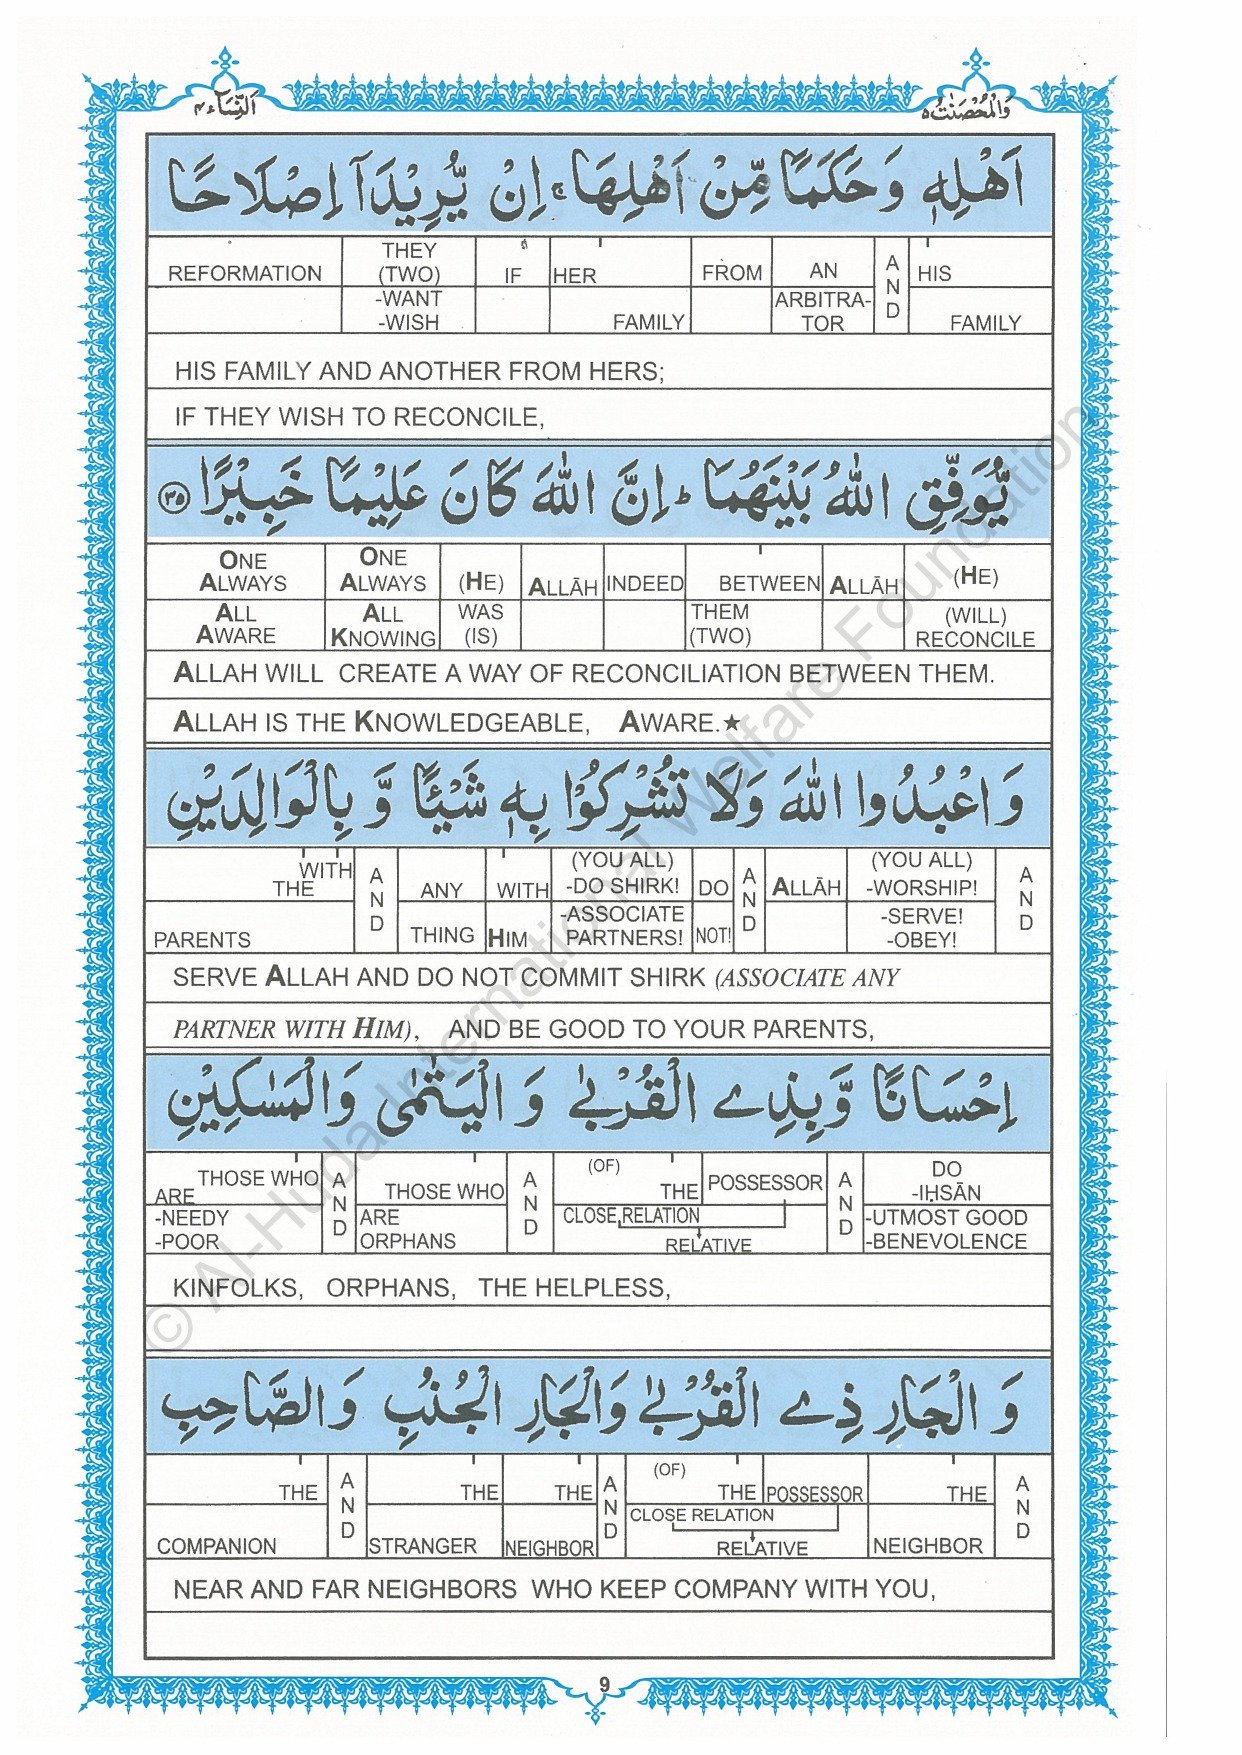 اَلنِّسَآء ٤
وَالْمُحْصَنٰتُ ٥
اَهْلِهٖ وَحَكَمًا مِّنْ اَهْلِهَا ۚ اِنْ يُّرِيْدَآ اِصْلَاحًا
REFORMATION THEY (TWO) -WANT -WISH IF HER FAMILY FROM AN ARBITRA-TOR AND HIS FAMILY
HIS FAMILY AND ANOTHER FROM HERS;
IF THEY WISH TO RECONCILE,
يُّوَفِّقِ اللّٰهُ بَيْنَهُمَا ؕ اِنَّ اللّٰهَ كَانَ عَلِيْمًا خَبِيْرًا ٣٥
ONE ALWAYS ALL AWARE ONE ALWAYS ALL KNOWING (HE) WAS (IS) ALLĀH INDEED BETWEEN THEM (TWO) ALLĀH (HE) (WILL) RECONCILE
ALLAH WILL CREATE A WAY OF RECONCILIATION BETWEEN THEM.
ALLAH IS THE KNOWLEDGEABLE, AWARE.★
وَاعْبُدُوا اللّٰهَ وَلَا تُشْرِكُوْا بِهٖ شَيْئًا وَّ بِالْوَالِدَيْنِ
WITH THE PARENTS AND ANY THING WITH HIM (YOU ALL) -DO SHIRK! -ASSOCIATE PARTNERS! DO NOT! AND ALLĀH (YOU ALL) -WORSHIP! -SERVE! -OBEY! AND
SERVE ALLAH AND DO NOT COMMIT SHIRK (ASSOCIATE ANY
PARTNER WITH HIM), AND BE GOOD TO YOUR PARENTS,
اِحْسَانًا وَّبِذِے الْقُرْبٰى وَ الْيَتٰمٰى وَالْمَسٰكِيْنِ
THOSE WHO ARE -NEEDY -POOR AND THOSE WHO ARE ORPHANS AND (OF) THE CLOSE RELATION POSSESSOR RELATIVE AND DO -IḤSĀN -UTMOST GOOD -BENEVOLENCE
KINFOLKS, ORPHANS, THE HELPLESS,
وَ الْجَارِ ذِے الْقُرْبٰى وَالْجَارِ الْجُنُبِ وَالصَّاحِبِ
THE COMPANION AND THE STRANGER THE NEIGHBOR AND (OF) THE CLOSE RELATION POSSESSOR RELATIVE THE NEIGHBOR AND
NEAR AND FAR NEIGHBORS WHO KEEP COMPANY WITH YOU,
9
© Al-Huda International Welfare Foundation